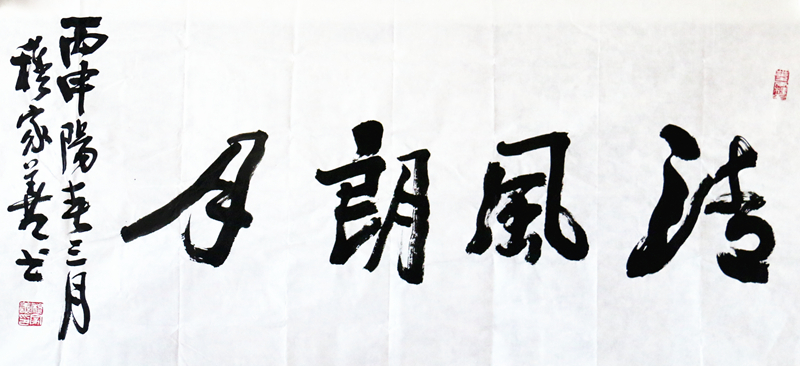 清風朗月
丙申陽春三月
穆家善书